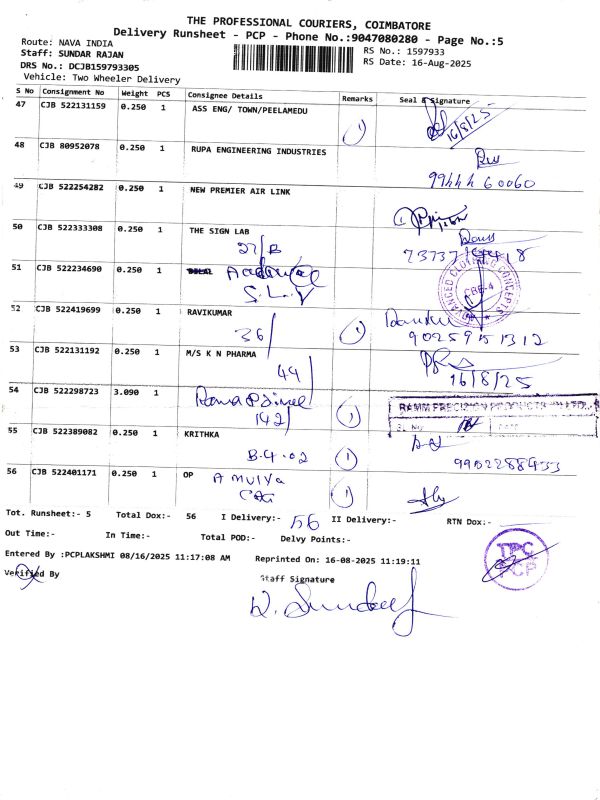 THE PROFESSIONAL COURIERS, COIMBATORE
Delivery Runsheet - PCP - Phone No.:9047080280 - Page No.:5
Route: NAVA INDIA
RS No.: 1597933
Staff: SUNDAR RAJAN
RS Date: 16-Aug-2025
DRS No.: DCJB159793305
Vehicle: Two Wheeler Delivery
S No Consignment No Weight PCS Consignee Details Remarks Seal & Signature
47 CJB 522131159 0.250 1 ASS ENG/ TOWN/PEELAMEDU 1 16/8/25
48 CJB 80952078 0.250 1 RUPA ENGINEERING INDUSTRIES
9944460060
49 CJB 522254282 0.250 1 NEW PREMIER AIR LINK
50 CJB 522333308 0.250 1 THE SIGN LAB
27/B
51 CJB 522234690 0.250 1
S.L.V
ADVANCED CLOTHING CONCEPTS
CBE-4
52 CJB 522419699 0.250 1 RAVIKUMAR
36/ 1
53 CJB 522131192 0.250 1 M/S K N PHARMA
44/ 16/8/25
54 CJB 522298723 3.090 1
142/ 1
RAMM PRECISION PRODUCTS
55 CJB 522389082 0.250 1 KRITHKA
B.4.02 1 9902288433
56 CJB 522401171 0.250 1 OP AMULYA
1
Tot. Runsheet:- 5 Total Dox:- 56 I Delivery:- 56 II Delivery:- RTN Dox:-
Out Time:- In Time:- Total POD:- Delvy Points:-
TPC
PCP
Entered By :PCPLAKSHMI 08/16/2025 11:17:08 AM Reprinted On: 16-08-2025 11:19:11
Verified By Staff Signature